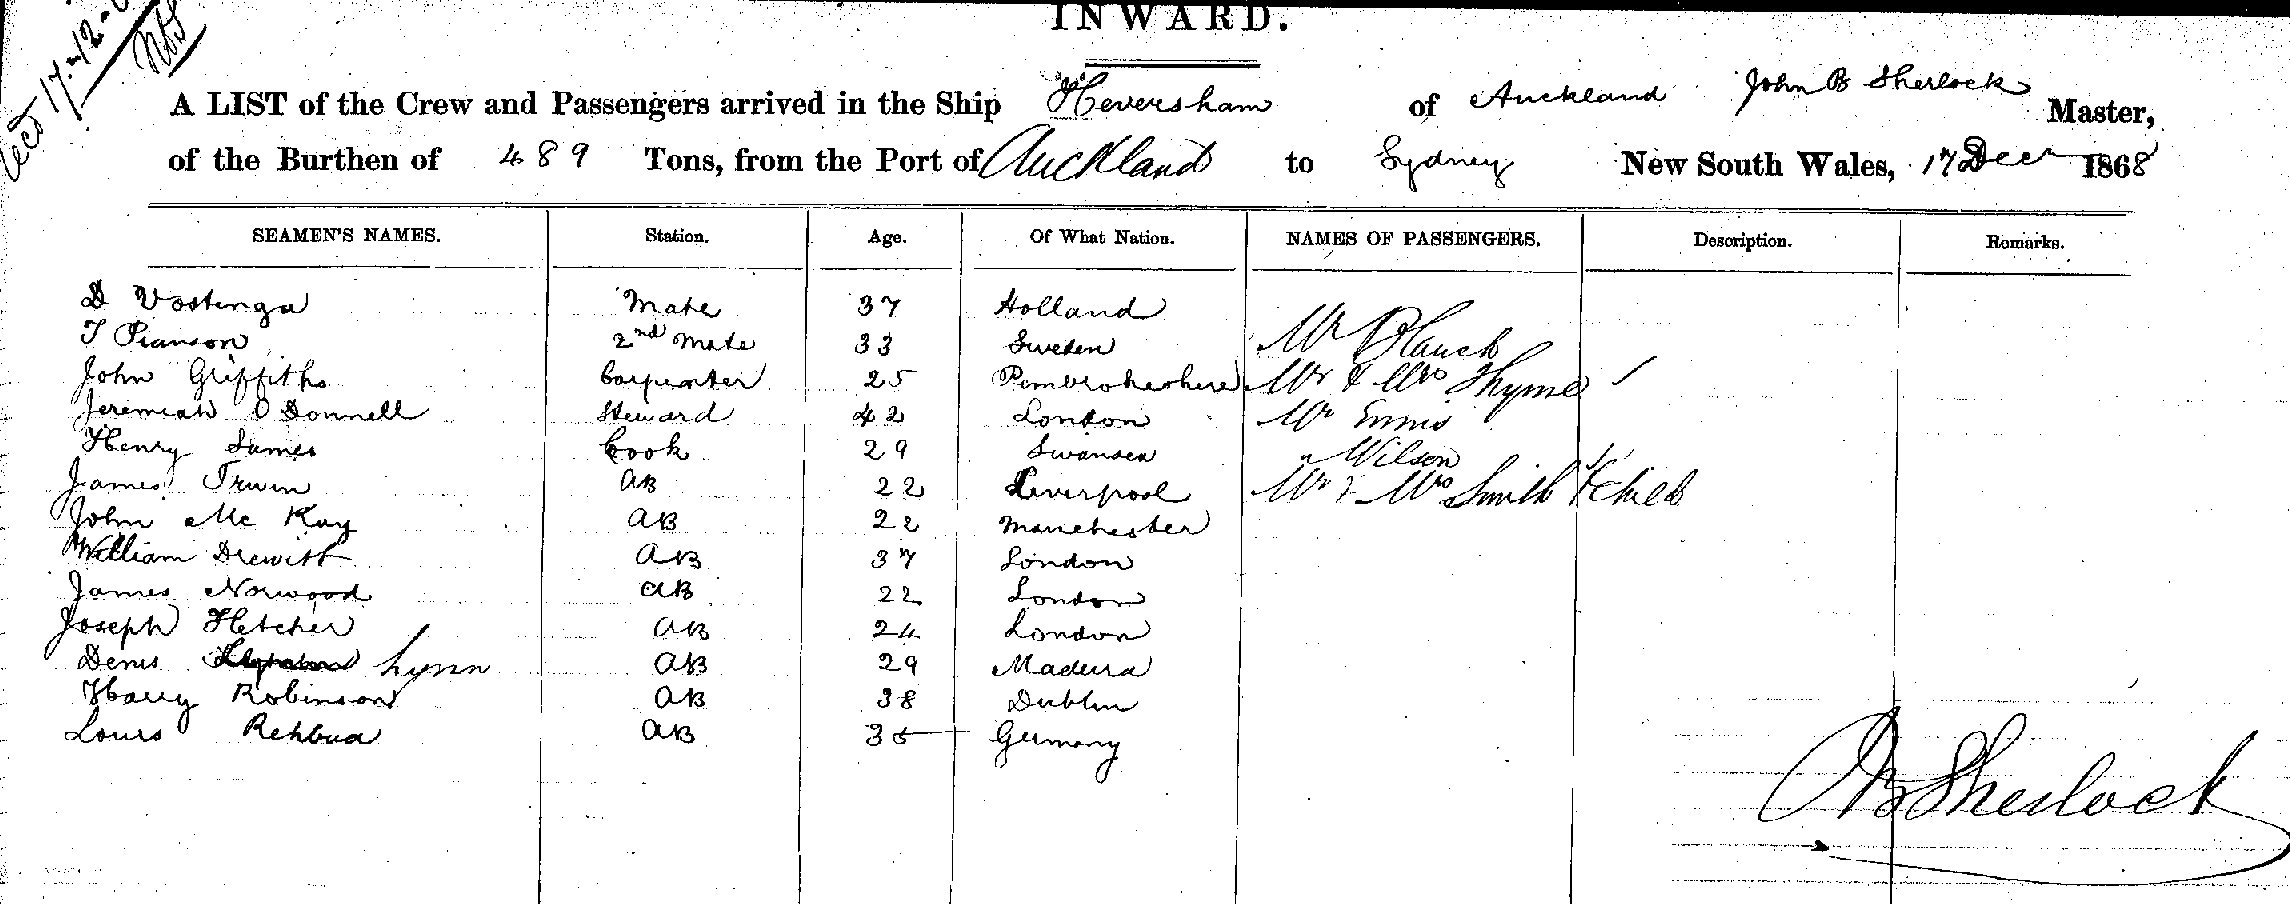 Recd 17-12-6
INWARD.
A LIST of the Crew and Passengers arrived in the Ship Heversham of Auckland John B Sherlock Master,
of the Burthen of 489 Tons, from the Port of Auckland to Sydney New South Wales, 17 Decr 1868
SEAMEN'S NAMES. Station. Age. Of What Nation. NAMES OF PASSENGERS. Description. Remarks.
D Vostenga Mate 37 Holland
T Pianson 2nd Mate 33 Sweden Mr Blauck
John Griffiths Carpenter 25 Pembrokeshire Mr & Mrs Thyme
Jeremiah O Donnell Steward 42 London Mr Ennis
Henry James Cook 29 Swansea " Wilson
James Irwin AB 22 Liverpool Mr & Mrs Smith & Child
John Mc Kay AB 22 Manchester
William Drewitt AB 37 London
James Norwood AB 22 London
Joseph Fletcher AB 24 London
Denis Lynn AB 29 Madeira
Harry Robinson AB 38 Dublin
Louis Rehbua AB 35 Germany
JB Sherlock